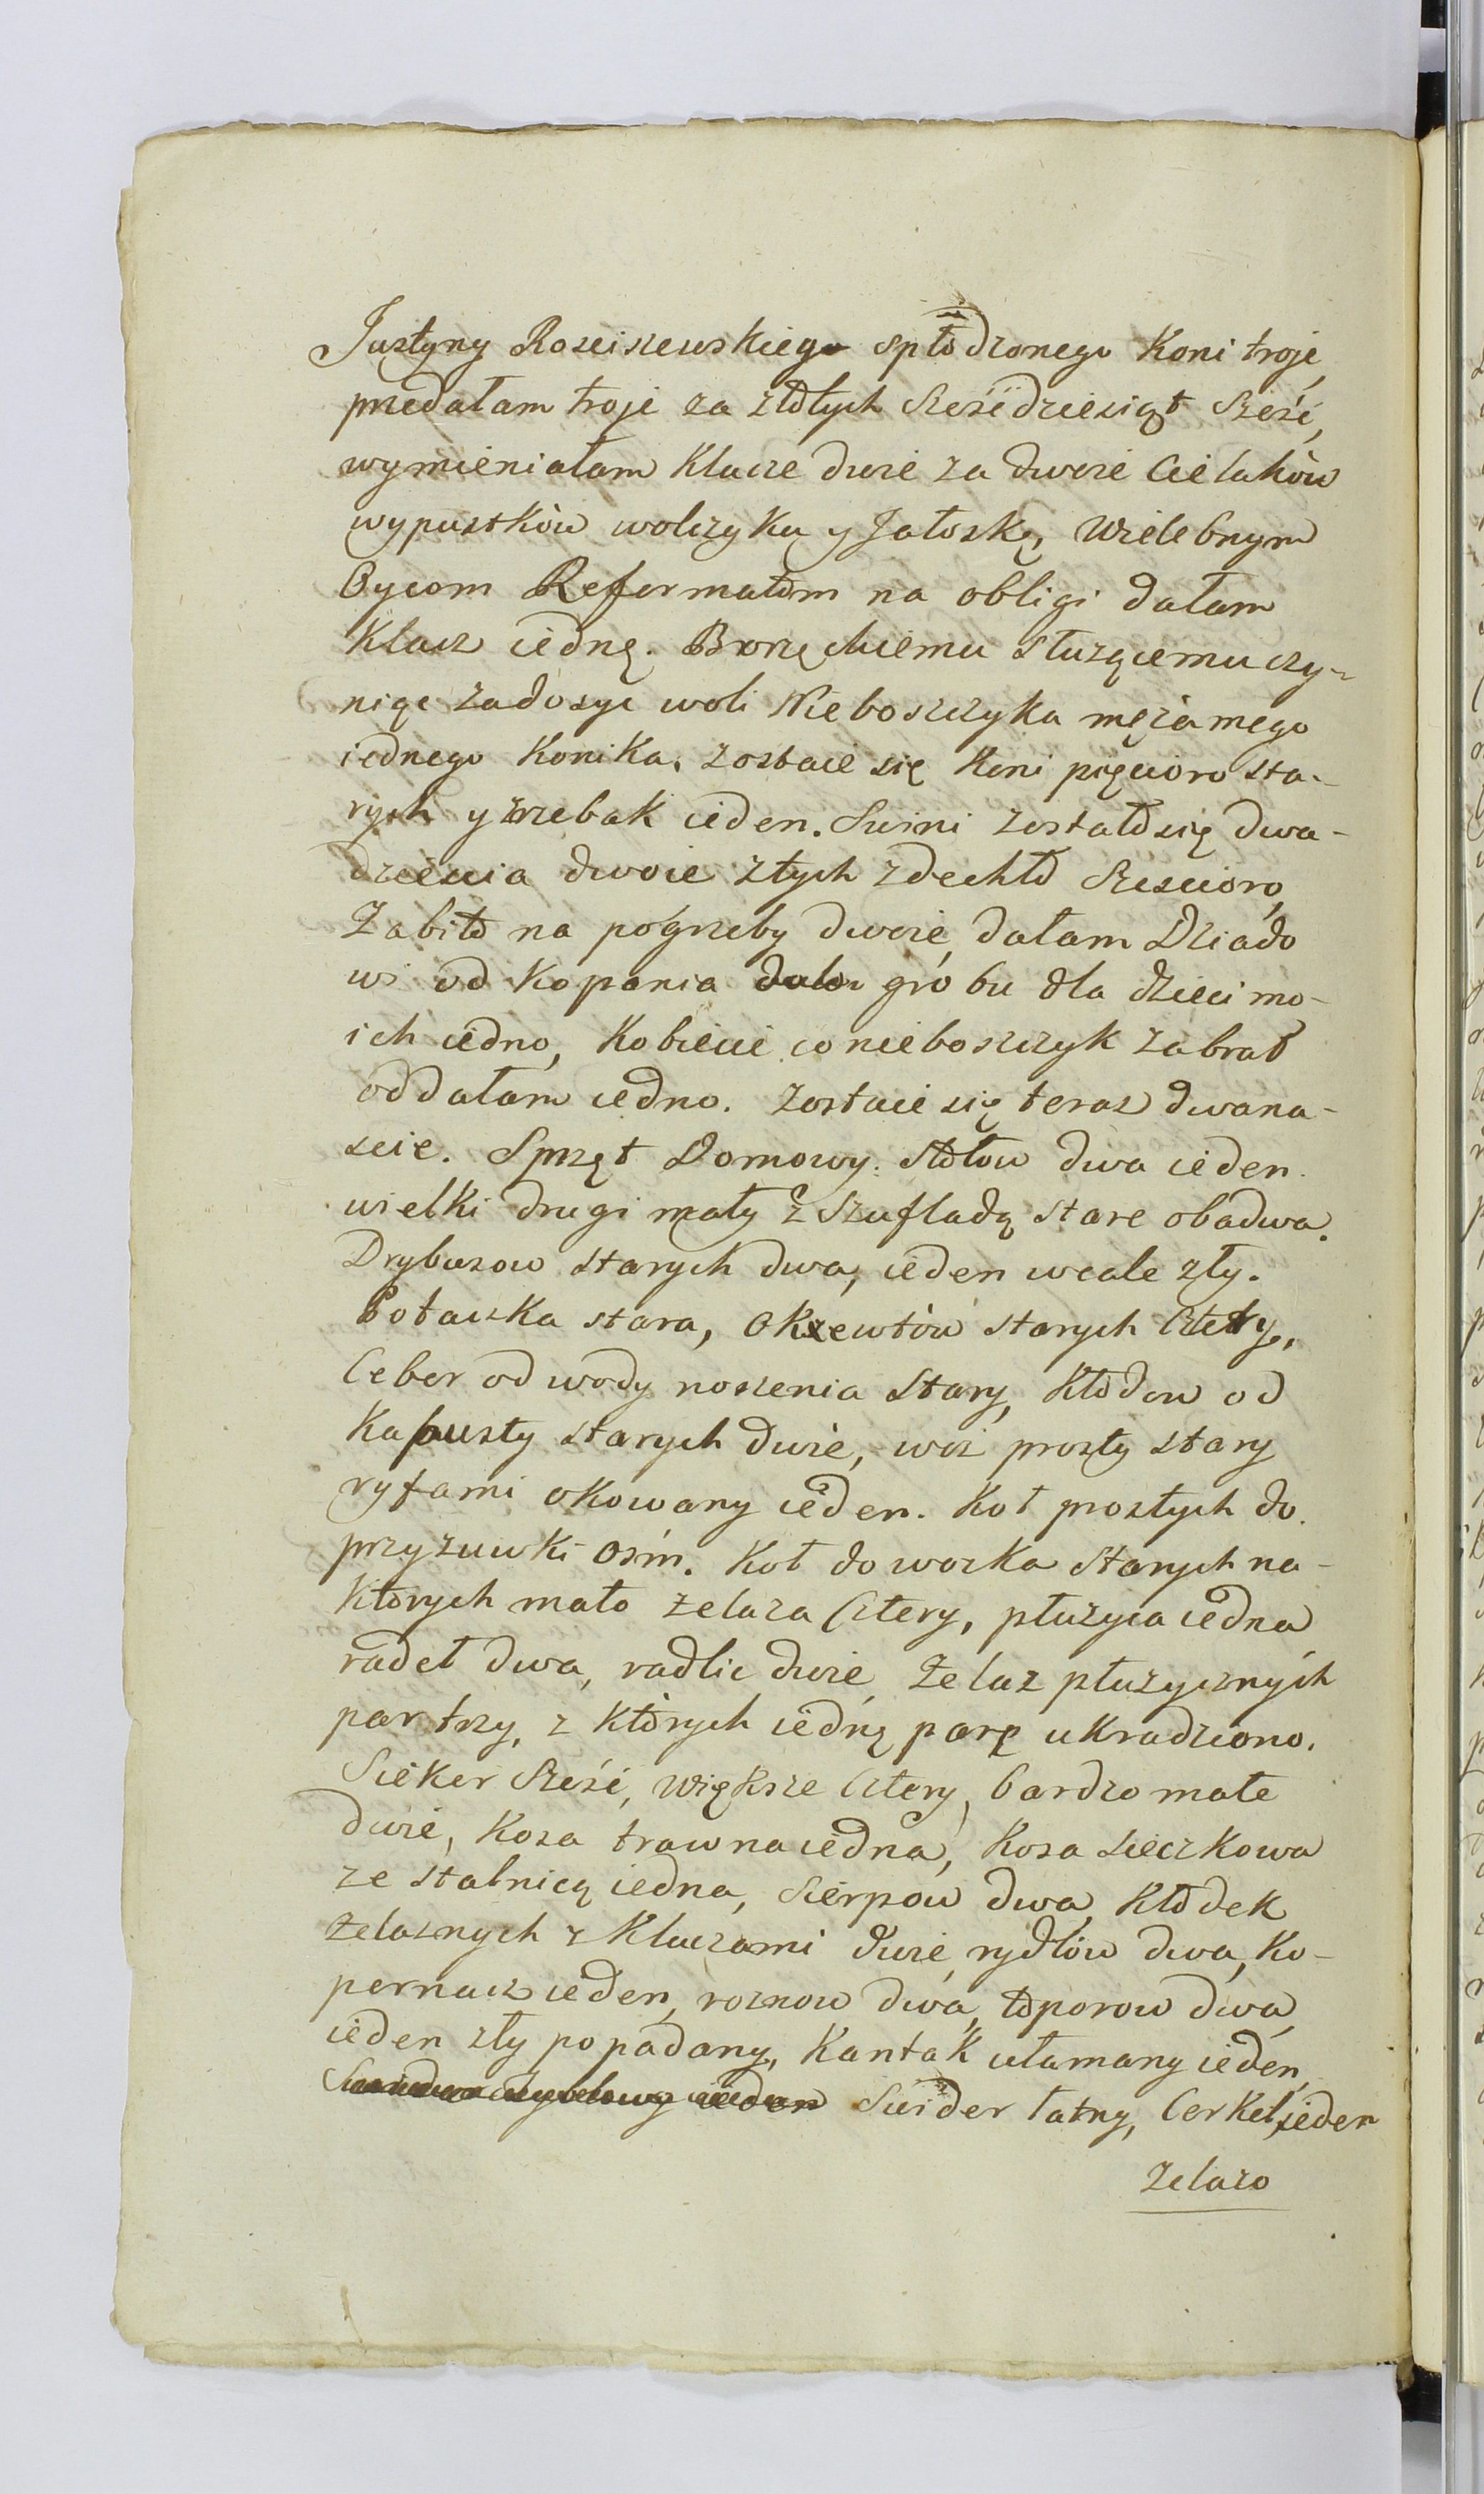 Justyny Rosciszewskiego spłodzonego Koni troje
przedałam troje za złotych Sześćdziesiąt Sześć,
wymieniałam Klacze dwie za dwoie Cielaków
wypustków wolczyka y Jałoszkę, Wielebnym
Oycom Reformatom na obligi dałam
Klacz iednę. Bronęckiemu służącemu czy-
niąc zadosyc woli Nieboszczyka męża mego
iednego Konika, zostaie się Koni pięcioro sta-
rych y zrzebak ieden. Swini zostało się dwa-
dziescia dwoie złych zdechło Szescioro,
Zabito na pogrzeby dwoie, dałam Dziado
wi od Kopania dało grobu dla dzieci mo-
ich iedno, Kobiecie co nieboszczyk zabrał
oddałam iedno. Zostaie się teraz dwana-
scie. Sprzęt Domowy: Stołow dwa ieden
wielki drugi mały z Szufladą stare obadwa.
Drybusow starych dwa, ieden wcale zły.
Potaczka stara, okrewtów starych Cztery,
Ceber od wody noszenia Stary, Kłodow od
Kapusty starych dwie, woz prosty stary
ryfami okowany ieden. Koł prostych do
przyzuwki osm. Koł do wozka starych na-
ktorych mało zelaza Cztery, płużyca iedna
radeł dwa, radlic dwie, Zelaz płużycznych
par trzy, z których iednę parę ukradziono.
Siekier Sześć, większe Cztery, bardzo małe
dwie, Kosa trawna iedna, Kosa sieczkowa
ze stalnicą iedna, Sierpow dwa, Kłodek
zelaznych z Kluczami dwie, rydlów dwa, Ko-
pernacz ieden, roznow dwa, toporow dwa,
ieden zły popadany, Kantak ułamany ieden,
ieden Swider łatny, Cerkel ieden
Zelazo